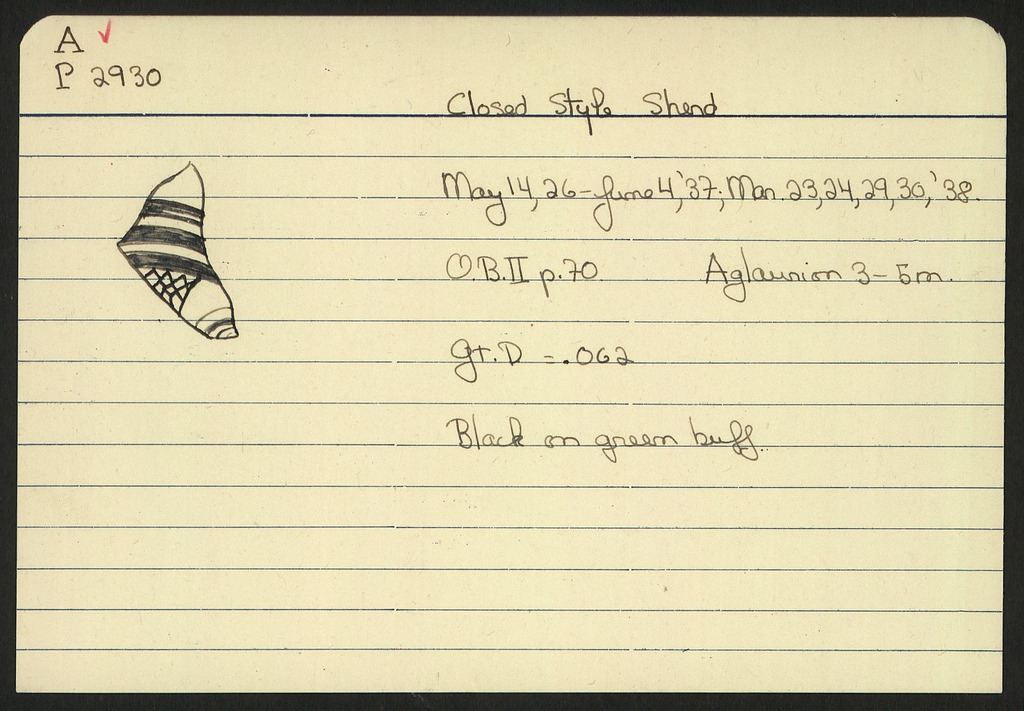 A ✓
P 2930
Closed Style Sherd
May 14, 26-June 4, '37; Mar. 23, 24, 29, 30, '38.
O.B. II p. 70 Aglaurion 3-5m.
Gr. D = .062
Black on green buff.